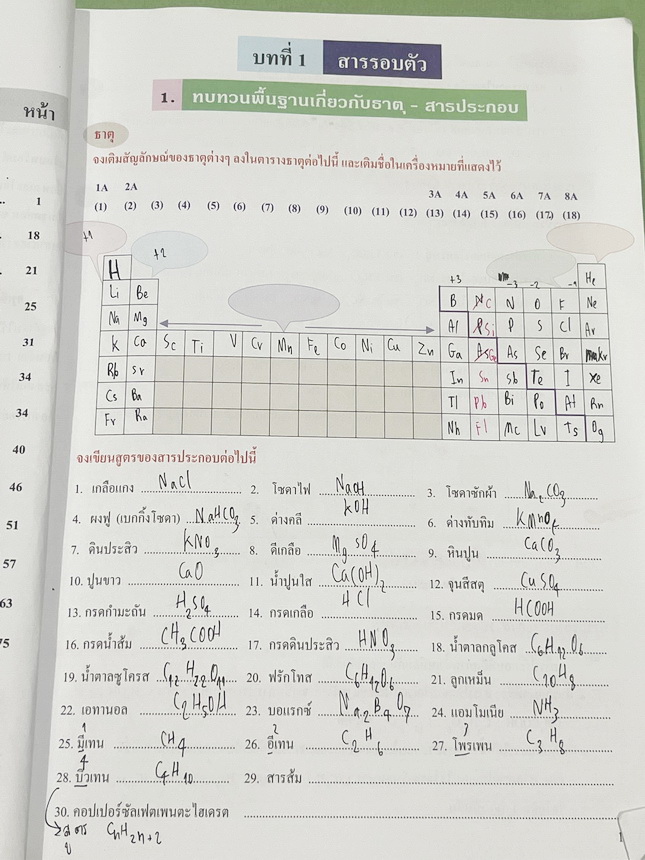 หน้า
1
18
21
25
31
34
34
40
46
51
57
63
75
บทที่ 1 สารรอบตัว
1. ทบทวนพื้นฐานเกี่ยวกับธาตุ - สารประกอบ
ธาตุ
จงเติมสัญลักษณ์ของธาตุต่างๆ ลงในตารางธาตุต่อไปนี้ และเติมชื่อในเครื่องหมายที่แสดงไว้
1A 2A 3A 4A 5A 6A 7A 8A
(1) (2) (3) (4) (5) (6) (7) (8) (9) (10) (11) (12) (13) (14) (15) (16) (17) (18)
+1 +2 +3 -3 -2 -1
H He
Li Be B C N O F Ne
Na Mg Al Si P S Cl Ar
K Ca Sc Ti V Cr Mn Fe Co Ni Cu Zn Ga Ge As Se Br Kr
Rb Sr In Sn Sb Te I Xe
Cs Ba Tl Pb Bi Po At Rn
Fr Ra Nh Fl Mc Lv Ts Og
จงเขียนสูตรของสารประกอบต่อไปนี้
1. เกลือแกง NaCl 2. โซดาไฟ NaOH 3. โซดาซักผ้า Na2CO3
4. ผงฟู (เบกกิ้งโซดา) NaHCO3 5. ด่างคลี KOH 6. ด่างทับทิม KMnO4
7. ดินประสิว KNO3 8. ดีเกลือ MgSO4 9. หินปูน CaCO3
10. ปูนขาว CaO 11. น้ำปูนใส Ca(OH)2 12. จุนสีสตุ CuSO4
13. กรดกำมะถัน H2SO4 14. กรดเกลือ HCl 15. กรดมด HCOOH
16. กรดน้ำส้ม CH3COOH 17. กรดดินประสิว HNO3 18. น้ำตาลกลูโคส C6H12O6
19. น้ำตาลซูโครส C12H22O11 20. ฟรักโทส C6H12O6 21. ลูกเหม็น C10H8
22. เอทานอล C2H5OH 23. บอแรกซ์ Na2B4O7 24. แอมโมเนีย NH3
1 2 3
25. มีเทน CH4 26. อีเทน C2H6 27. โพรเพน C3H8
4
28. บิวเทน C4H10 29. สารส้ม
30. คอปเปอร์ซัลเฟตเพนตะไฮเดรต
สูตร CnH2n+2
1